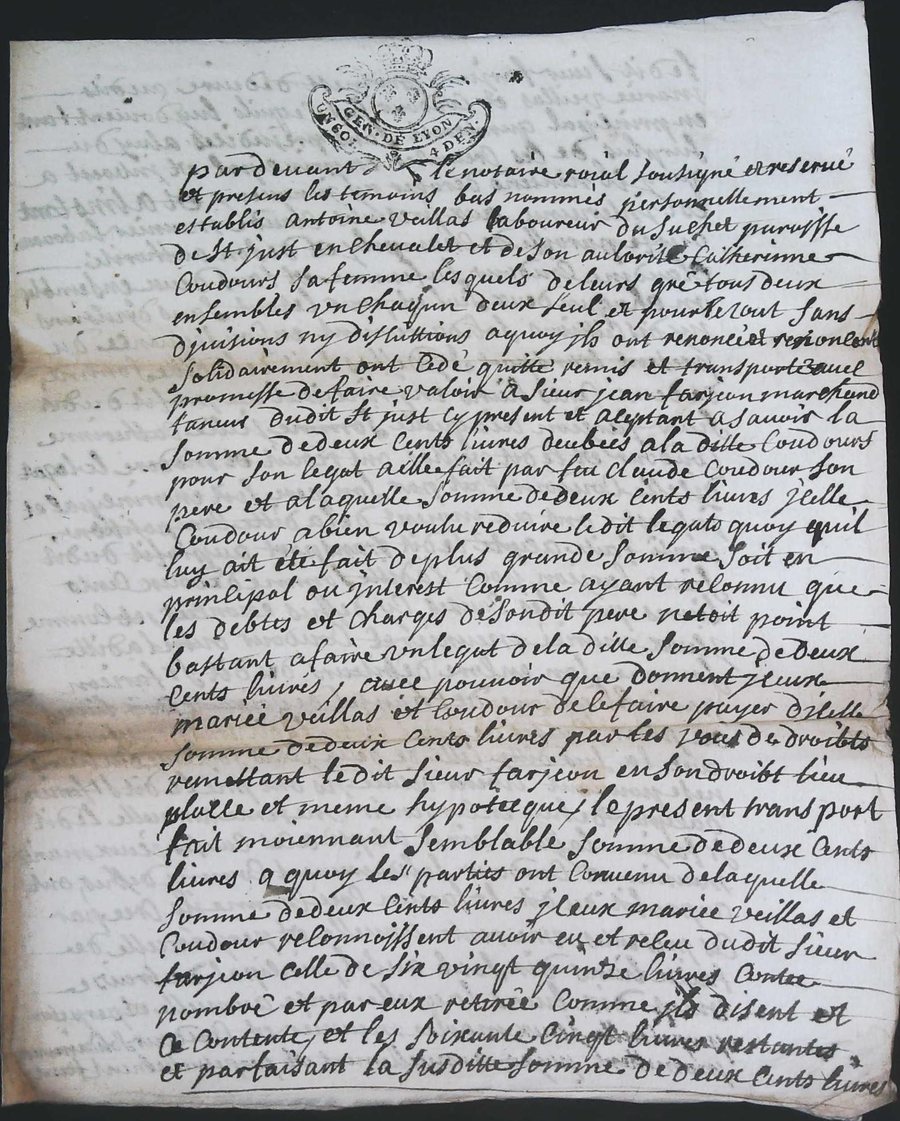 UN SOL
GEN. DE LYON
4 DEN.
pardevant le notaire roial sousigné et reservé
et presens les temoins bas nommés personnellement
establis antoine veillas laboureur du suchet parroisse
de st just en chevalet et de son autorité Catherinne
Coudours sa femme lesquels de leurs gré tous deux
ensembles un chaqun deux seul et pour le tout sans
divisions ny discuttions a quoy ils ont renoncé et renoncent
solidairement ont cedé quitté remis et transporté avec
promesse de faire valoir a sieur jean farjeon marchand
taneur dudit st just cy present et aceptant a savoir la
somme de deux cents livres deubëes a la ditte Coudours
pour son legat a elle fait par feu claude Coudour son
pere et a laquelle somme de deux cents livres jcelle
Coudour a bien voulu reduire ledit legats quoy quil
luy ait été fait de plus grande somme soit en
principal ou interest comme ayant reconnu que
les debtes et charges de sondit pere netoit point
bastant a faire un legat de la ditte somme de deux
cents livres, avec pouvoir que donnent jceux
mariée veillas et Coudour de le faire payer djcelle
somme de deux cents livres par les voies de droibts
remettant le dit sieur farjeon en son droibt lieu
place et meme hypoteque, le present transport
fait moiennant semblable somme de deux cents
livres a quoy les parties ont convenu de laquelle
somme de deux cents livres jceux mariée veillas et
Coudour reconnoissent avoir eu et receu dudit sieur
farjeon celle de six vingt quinse livres contée
nombré et par eux retirée comme ils disent et
ce contente, et les soixante cinqt livres restantes
et parfaisant la susditte somme de deux cents livres